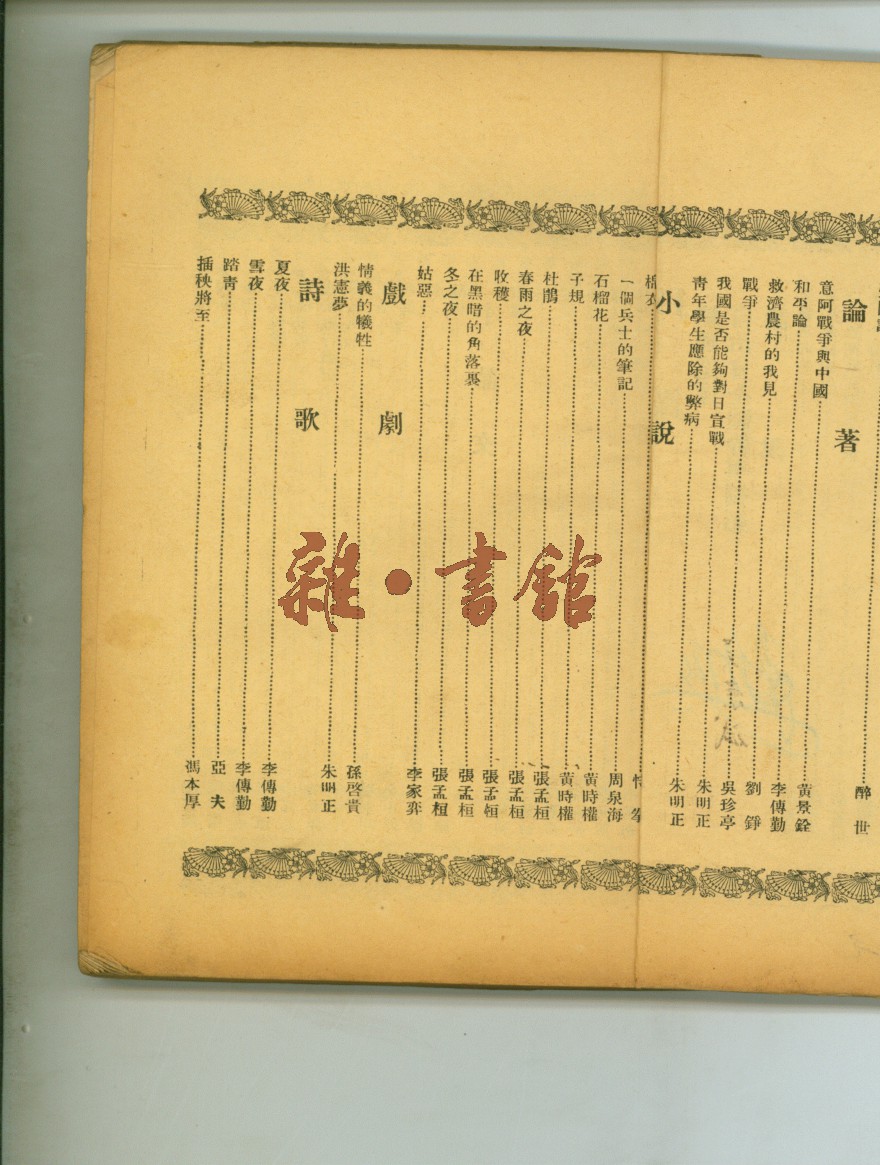 醉世
論著
意阿戰爭與中國……黃景銓
和平論……李傳勤
救濟農村的我見……劉錚
戰爭……吳珍亭
我國是否能夠對日宣戰……朱明正
青年學生應除的弊病……朱明正
小說
棉衣……
一個兵士的筆記……周泉海
石榴花……黃時權
子規……黃時權
杜鵑……張孟桓
春雨之夜……張孟桓
收穫……張孟桓
在黑暗的角落裏……張孟桓
冬之夜……張孟桓
姑惡……李家弈
戲劇
情義的犧牲……孫啓貴
洪憲夢……朱明正
詩歌
夏夜……李傳勤
雪夜……李傳勤
踏青……亞夫
插秧將至……馮本厚
雜·書館